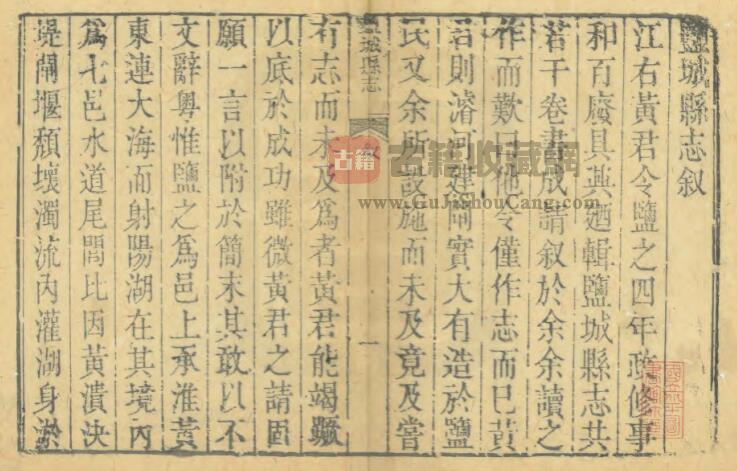 鹽城縣志叙
江右黃君令鹽之四年政修事
和百廢具興廼輯鹽城縣志共
若干卷書成請叙於余余讀之
作而歎曰他令僅作志而已黃
君則濬河建閘實大有造於鹽
民又余所設施而未及竟及嘗
鹽城縣志 叙 一
有志而未及爲者黃君能竭蹶
以底於成功雖微黃君之請固
願一言以附於簡末其敢以不
文辭粤惟鹽之爲邑上承淮黃
東連大海而射陽湖在其境內
爲七邑水道尾閭比因黃潰決
堤閘堰頹壞濁流內灌湖身淤
古籍
古籍收藏網
www.GuJiShouCang.com